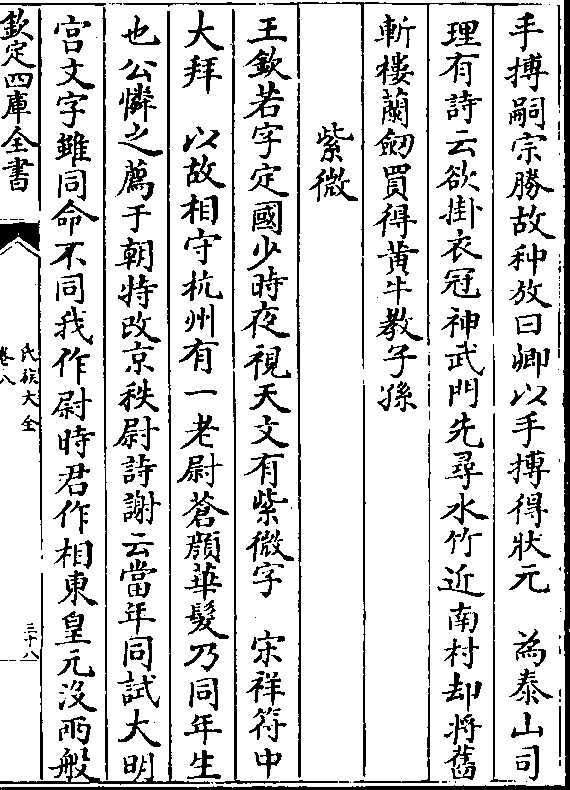 手搏嗣宗勝故种放曰卿以手搏得狀元　為泰山司
理有詩云欲掛衣冠神武門先尋水竹近南村却將舊
斬樓蘭劒買得黄牛教子孫
紫微
王欽若字定國少時夜視天文有紫微字　宋祥符中
大拜　以故相守杭州有一老尉蒼顔華髮乃同年生
也公憐之薦于朝特改京秩尉詩謝云當年同試大明
宫文字雖同命不同我作尉時君作相東皇元沒兩般
欽定四庫全書
氏族大全
卷八
三十八